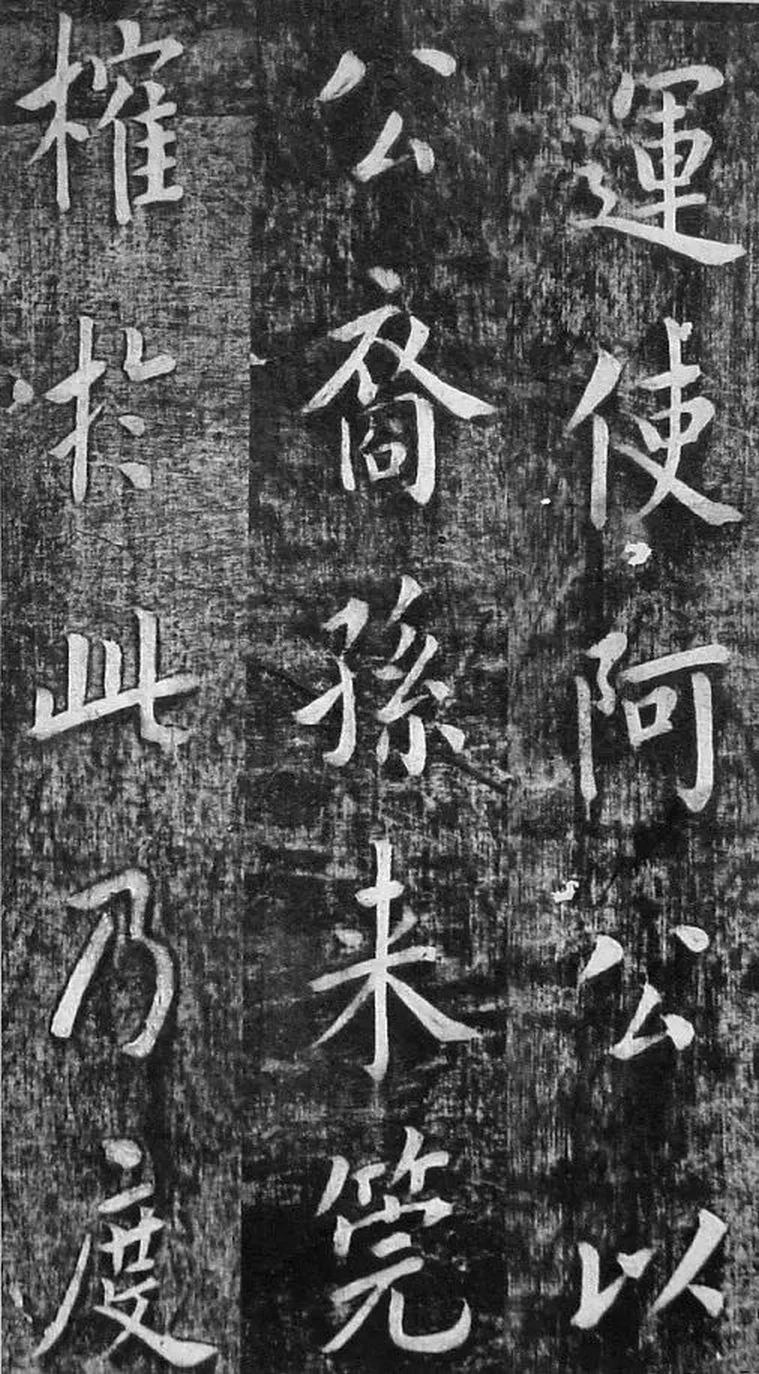 運使阿公以
公裔孫来筦
榷於此乃度